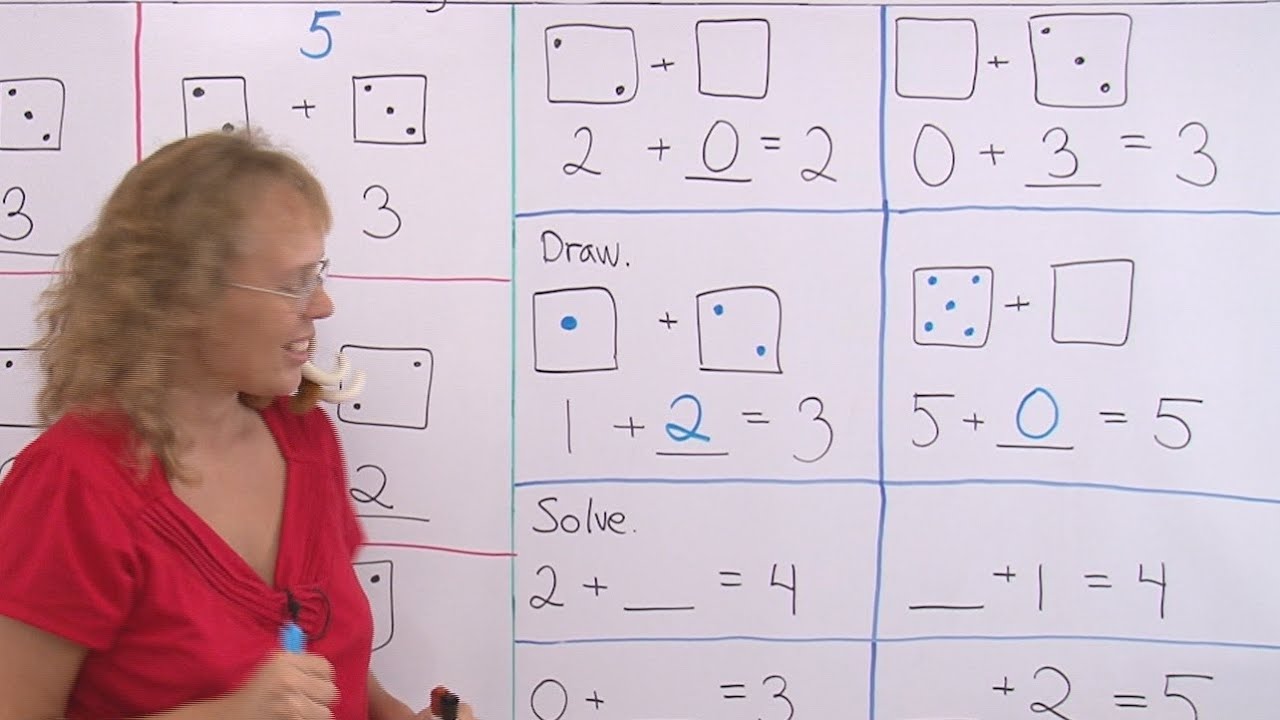 5
+
3
3
2
+
2 + 0 = 2
+
0 + 3 = 3
Draw.
+
1 + 2 = 3
+
5 + 0 = 5
Solve.
2 + __ = 4
__ + 1 = 4
0 + = 3
+ 2 = 5